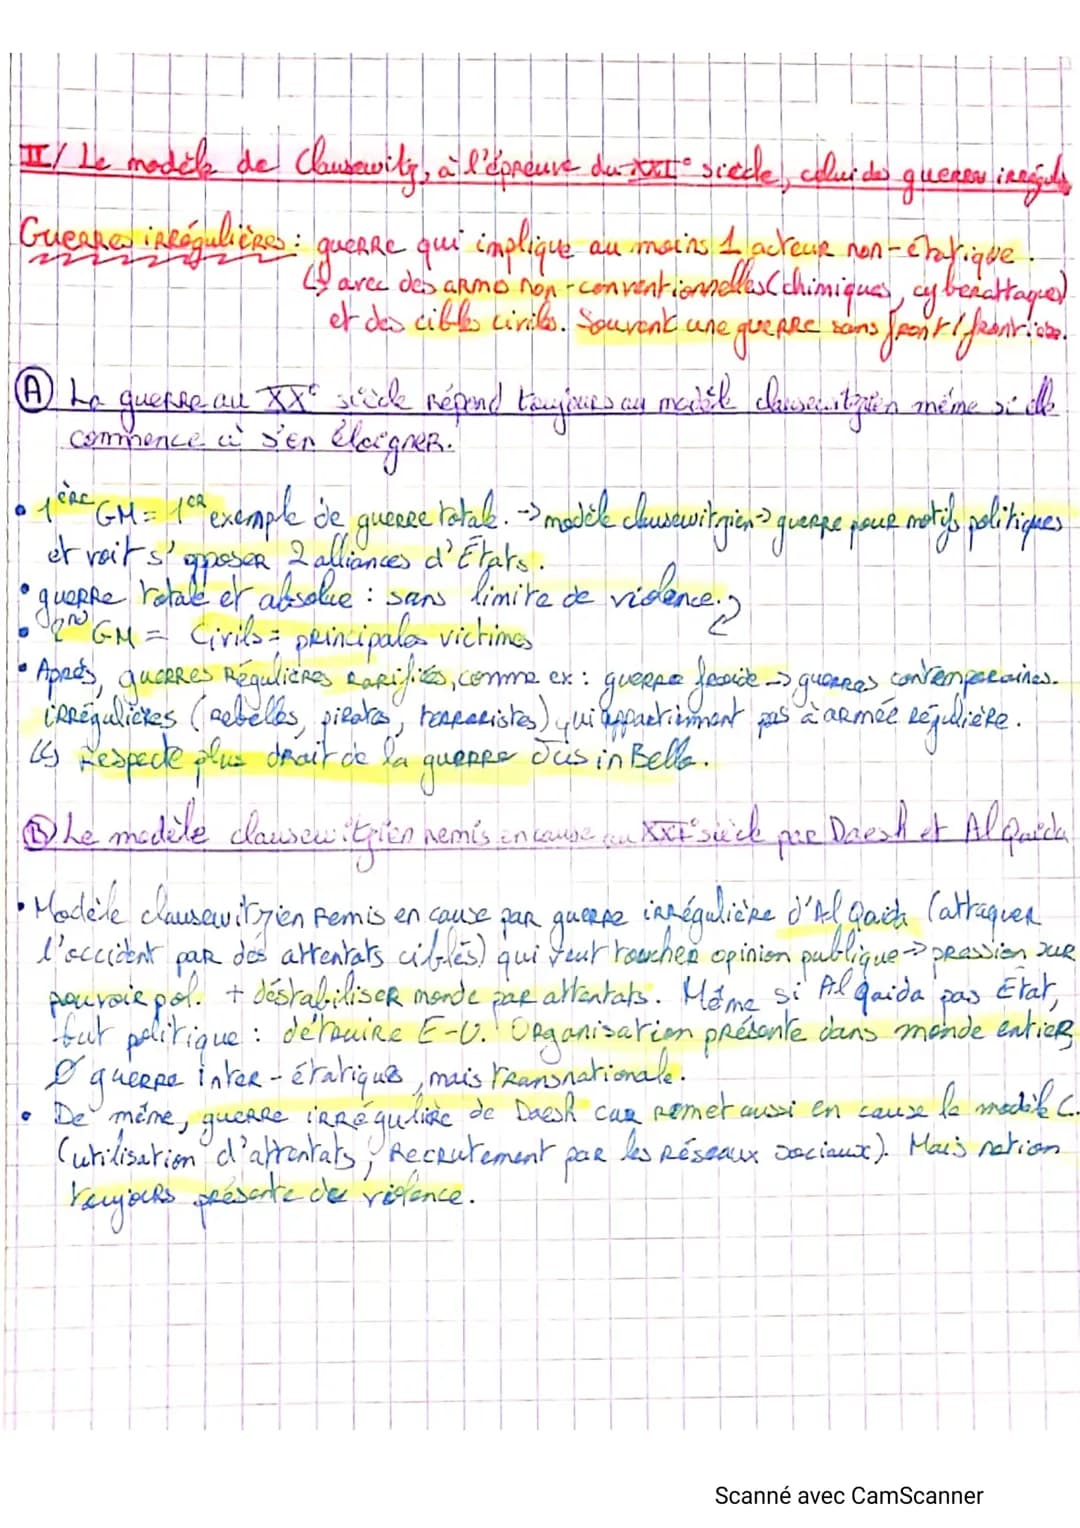 II/ Le modèle de Clausewitz, à l'épreuve du XXI° siècle, celui des guerres irréguls
Guerres irrégulières : guerre qui implique au moins 1 acteur non-étatique.
↳ avec des armes non-conventionnelles (chimiques, cyberattaques)
et des cibles civiles. Souvent une guerre sans front/frontière.
Ⓐ La guerre au XX° siècle répond toujours au modèle clausewitzien même si elle
commence à s'en éloigner.
• 1ère GM = 1er exemple de guerre totale. -> modèle clausewitzien -> guerre pour motifs politiques
et voit s'opposer 2 alliances d'États.
• guerre totale et absolue : sans limite de violence.
• 2nd GM = Civils = principales victimes
• Après, guerres régulières rarifiées, comme ex : guerre froide -> guerres contemporaines.
irrégulières (rebelles, pirates, terroristes) qui appartiennent pas à armée régulière.
↳ Respecte plus droit de la guerre Jus in Bello.
Ⓑ Le modèle clausewitzien remis en cause au XXI° siècle par Daesh et Al Qaida
• Modèle clausewitzien remis en cause par guerre irrégulière d'Al Qaida (attaquer
l'occident par des attentats ciblés) qui veut toucher opinion publique -> pression sur
pouvoir pol. + déstabiliser monde par attentats. Même si Al Qaida pas État,
but politique : détruire E-U. Organisation présente dans monde entier,
Ø guerre inter-étatiques, mais transnationale.
• De même, guerre irrégulière de Daesh car remet aussi en cause le modèle C.
(utilisation d'attentats, recrutement par les réseaux sociaux). Mais notion
toujours présente de violence.
Scanné avec CamScanner